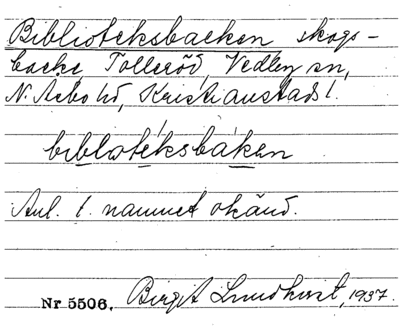 Biblioteksbacken skogs-
backe, Tolleröd, Vedby sn,
N. Åsbo hd, Kristianstads l.
bibliotéksbàkan
Anl. t. namnet okänd.
Nr 5506. Birgit Lundkvist, 1937.